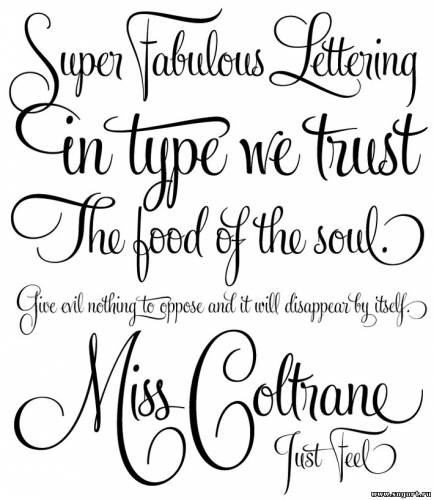 Super Fabulous Lettering
in type we trust
The food of the soul.
Give evil nothing to oppose and it will disappear by itself.
Miss Coltrane
Just Feel
www.sogart.ru